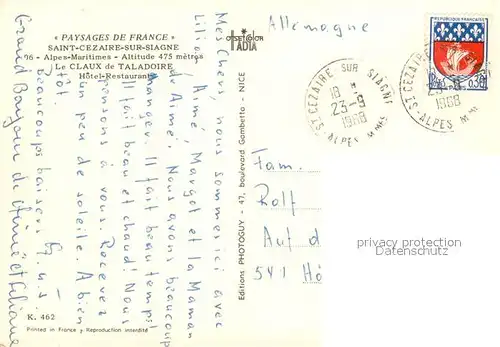 « PAYSAGES DE FRANCE »
SAINT-CEZAIRE-SUR-SIAGNE
06 - Alpes-Maritimes - Altitude 475 mètres
Le CLAUX de TALADOIRE
Hôtel-Restaurant
Mes Chers, nous sommes ici avec
Lili, Aimé, Margot et la Maman
de Aimé. Nous avons beaucoup
manger. Il fait beau temps!
Il fait beau et chaud! Nous
pensons a vous. Recevez
un peu de soleile. A bien
tôt.
beaucoup baisers
Grand Bonjour de Aimé et Liliane
K. 462
Printed in France Reproduction interdite
Editions PHOTOGUY - 47, boulevard Gambetta - NICE
OFFSETCOLOR
IADIA
Allemagne
REPUBLIQUE FRANÇAISE
0,30
ST-CEZAIRE SUR SIAGNE
18
23-9
1968
ALPES MMES
ST-CEZAIRE
23-9
1968
ALPES MMES
Fam.
Rolf
Auf d
541 Hö
privacy protection
Persönlichkeitsschutz